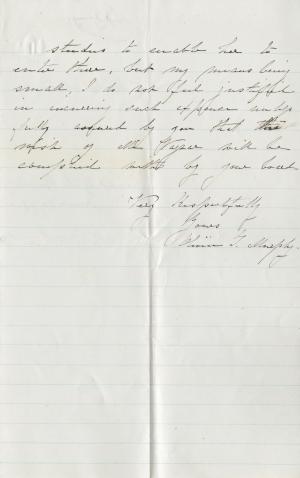 studies to enable her to
enter there, but my means being
small, I do not feel justified
in incurring such expense unless
fully assured by you that the
wish of Mr will be
complied with by your board
Very Respectfully
Yours &c
T. Murphy